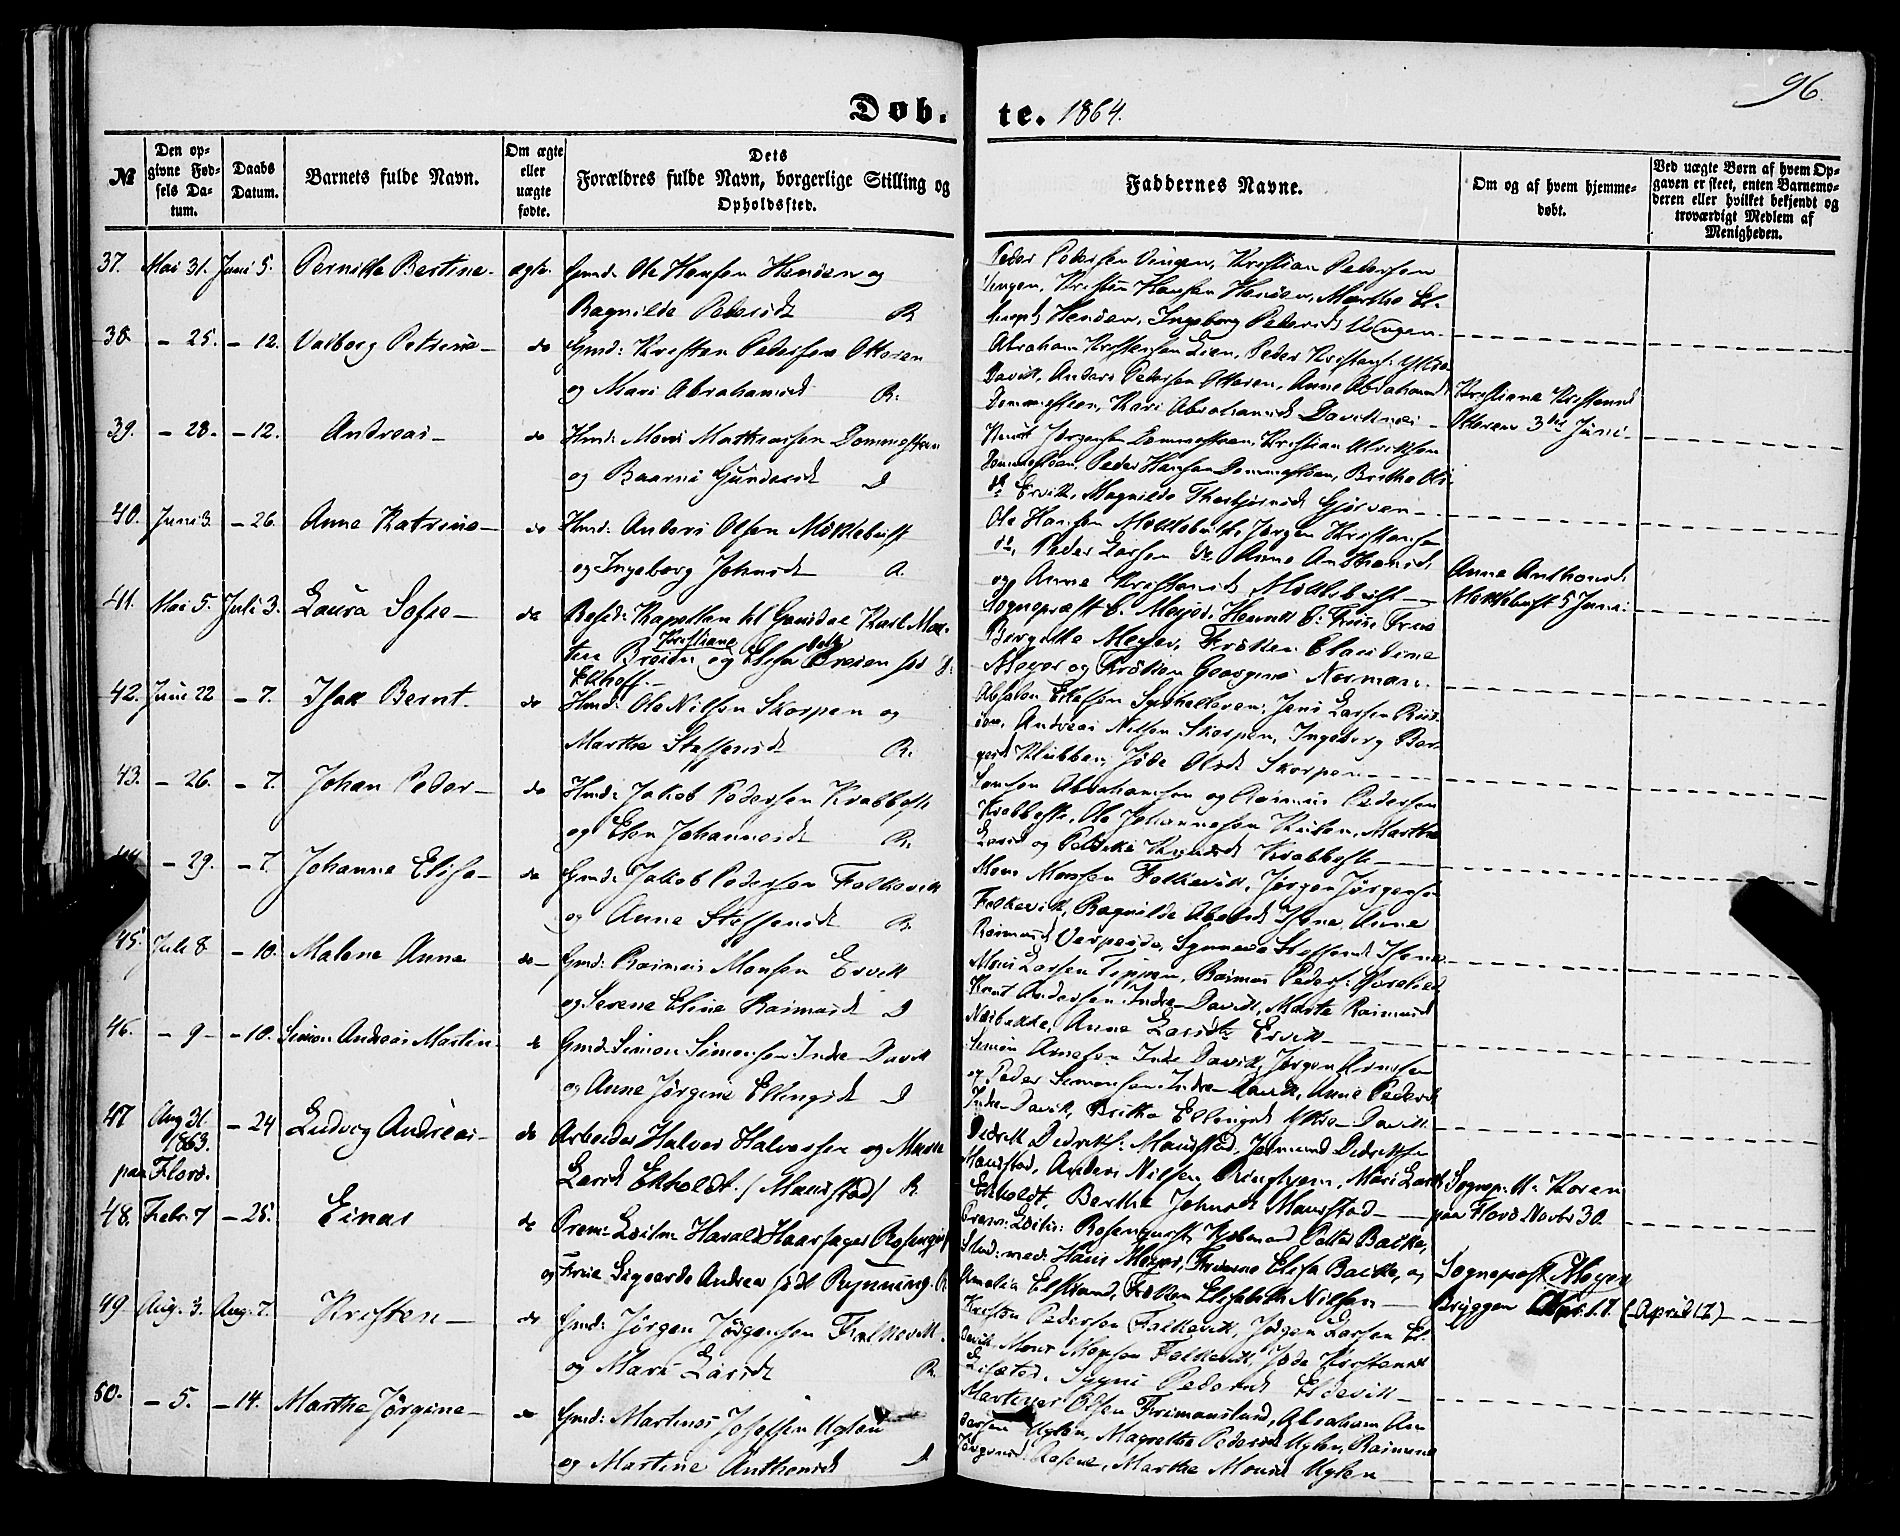 96.
Døb- te. 1864.
№
Den opgivne Fødsels Datum.
Daabs Datum.
Barnets fulde Navn.
Om ægte eller uægte fødte.
Dets Forældres fulde Navn, borgerlige Stilling og Opholdssted.
Faddernes Navne.
Om og af hvem hjemmedøbt.
Ved uægte Børn af hvem Opgaven er skeet, enten Barnemoderen eller hvilket bekjendt og troværdigt Medlem af Menigheden.
37. Mai 31. Juni 5. Pernille Bertine ægte. Gmd: Ole Hansen Henøen og
Ragnilde Pedersdt R
Peder Pedersen Vingen, Kristian Pedersen
Vingen, Kristen Hansen Henøen, Marthe
Henøen, Ingeborg Pedersdt Vingen
38. - 25. - 12. Valborg Petrine - do Gmd: Kristen Pedersen Otteren
og Mari Abrahamsdt R.
Abraham Kristensen Lien, Peder Kristens: Ytre
Davik, Anders Pedersen Otteren, Anne Abrahamsdt
Dommesteen, Kari Abrahamsdt Daviknes -
Kristiane Kristensdt
Otteren 3die Juni
39. - 28. - 12. Andreas - do Hmd: Mons Mathiassen Dommesteen
og Gundersdt D
Knut Jørgensen Dommesteen, Kristian Ulriksen
Dommesteen, Peder Hansen Dommesteen, Brithe Ols
dt Ervik, Magnilde Thorbjørnsdt Gjørven -
40. Juni 3. - 26. Anne Katrine - do Hmd: Anders Olsen Møklebust
og Ingeborg Johnsdt A.
Ole Hansen Møklebust, Jørgen Kristensen
do, Peder Larsen do Anne Anthonsdt
og Anne Kristensdt Møklebust -
Anne Anthonsdt
Møklebust 5 Juni
41. Mai 5. Juli 3. Laura Sofie - do Resid: Kapellan til Gausdal Karl Mar-
tin Breien og Elise Kristiane Breien fød D.
Ekhoff. -
Sognepræst C. Meyer, Frue
Birgitte Meyer, Frøken Claudine
Meyer og Frøken Georgine Norman.
42. Juni 22 - 7. Isak Bernt. do Hmd: Ole Nilsen Skorpen og
Marthe Steffensdt R.
Absalon, Jens Larsen
Andreas Nilsen Skorpen, Ingeborg
Klubben, Jøde Olsdt Skorpen -
43. - 26. - 7. Johan Peder - do Hmd: Jakob Pedersen Krabbest
og Elen Johannesdt R.
Abrahamsen og Rasmus Pedersen
Krabbest, Ole Johannesen, Marthe
Larsdt og Knudsdt Krabbest -
- 29. - 7. Johanne Elise - do Gmd: Jakob Pedersen Falkevik
og Anne Steffensdt R.
Mons Monsen Falkevik, Jørgen Jørgensen
Falkevik, Ragnilde Isene, Anne
Rasmusdt, Synneva Steffensdt Isene
45. Juli 8 - 10. Malene Anne do - Gmd: Rasmus Monsen Ervik
og Serene Eline Rasmusdt D
Mons Larsen Tippen, Rasmus Peders:
Knut Andersen Indre Davik, Marte Rasmusdt
Anne Larsdt Ervik -
46. - 9 - - 10. Simon Andreas Martin do Gmd: Simon Simonsen Indre Davik
og Anne Jørgine Ellingsdt D
Simon Arnesen Indre Davik, Jørgen
og Peder Simonsen Indre Davik, Anne Pedersdt
Indre Davik, Britha Ellingsdt Ytre Davik
47 Aug 31. 1863. paa Florø. - 24 Ludvig Andreas - do Arbeider Halvor Halvorsen og
Larsdt Ekholdt. (Maurstad) R.
Didrik Didriks: Maurstad, Didriksen
Maurstad, Anders Nilsen, Mari Larsdt
Ekholdt, Berthe Johnsdt Maurstad -
Sognep: Koren
paa Florø Novbr 30.
48. Febr. 7 - 25. Einar do Prem: Løitn Harald Haarfager Rosenqvist
og Frue Sigvarda Andrea født Rynning. R.
Prem: Løitn: Rosenqvist, Kjøbmand Petter Bakke,
Stud: med: Hans Meyer, Fruerne Elise Bakke, og
Amalia, Frøken Elisabeth Nilsen -
Sognepræst Meyer
Bryggen Apr. 17. (April 17) -
49. Aug. 3. Aug. 7. Kristen - do Gmd: Jørgen Jørgensen Falkevik
og Mari Larsdt R.
Kristen Pedersen Falkevik, Jørgen Larsen El-
devik, Mons Monsen Falkevik, Jøde Kristensdt
Pedersdt Eldevik -
50. - 5. - 14. Marthe Jørgine - do Gmd: Martinus Josefsen Uglen
og Martine Anthonsdt D
Martinus Olsen Frimanslund, Abraham An-
dersen Uglen, Magrethe Pedersdt Uglen, Rasmine
Jørgensdt Aasene, Marthe Monsdt Uglen -